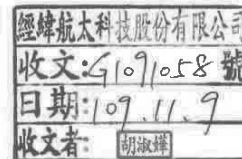 經緯航太科技股份有限公司
收文:G1091058號
日期:109.11.9
收文者:胡淑嬅